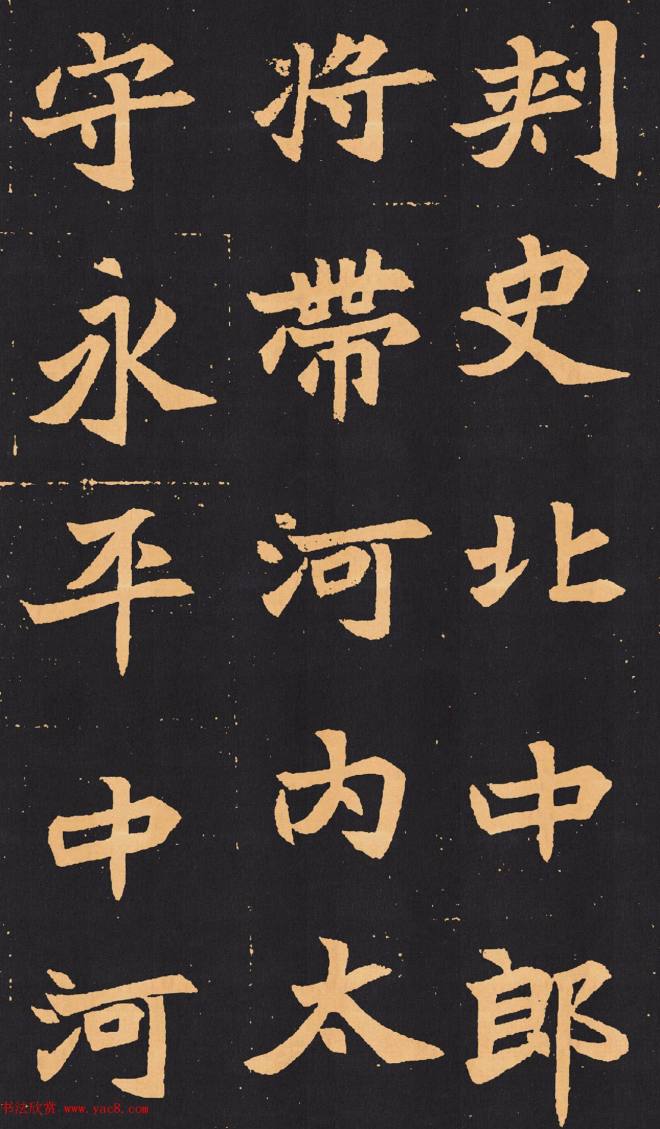 刾史北中郎
将帶河内太
守永平中河
书法欣赏 www.yac8.com